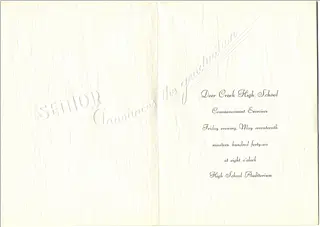 SENIOR
Deer Creek High School
Commencement Exercises
Friday evening, May seventeenth
nineteen hundred forty-six
at eight o'clock
High School Auditorium